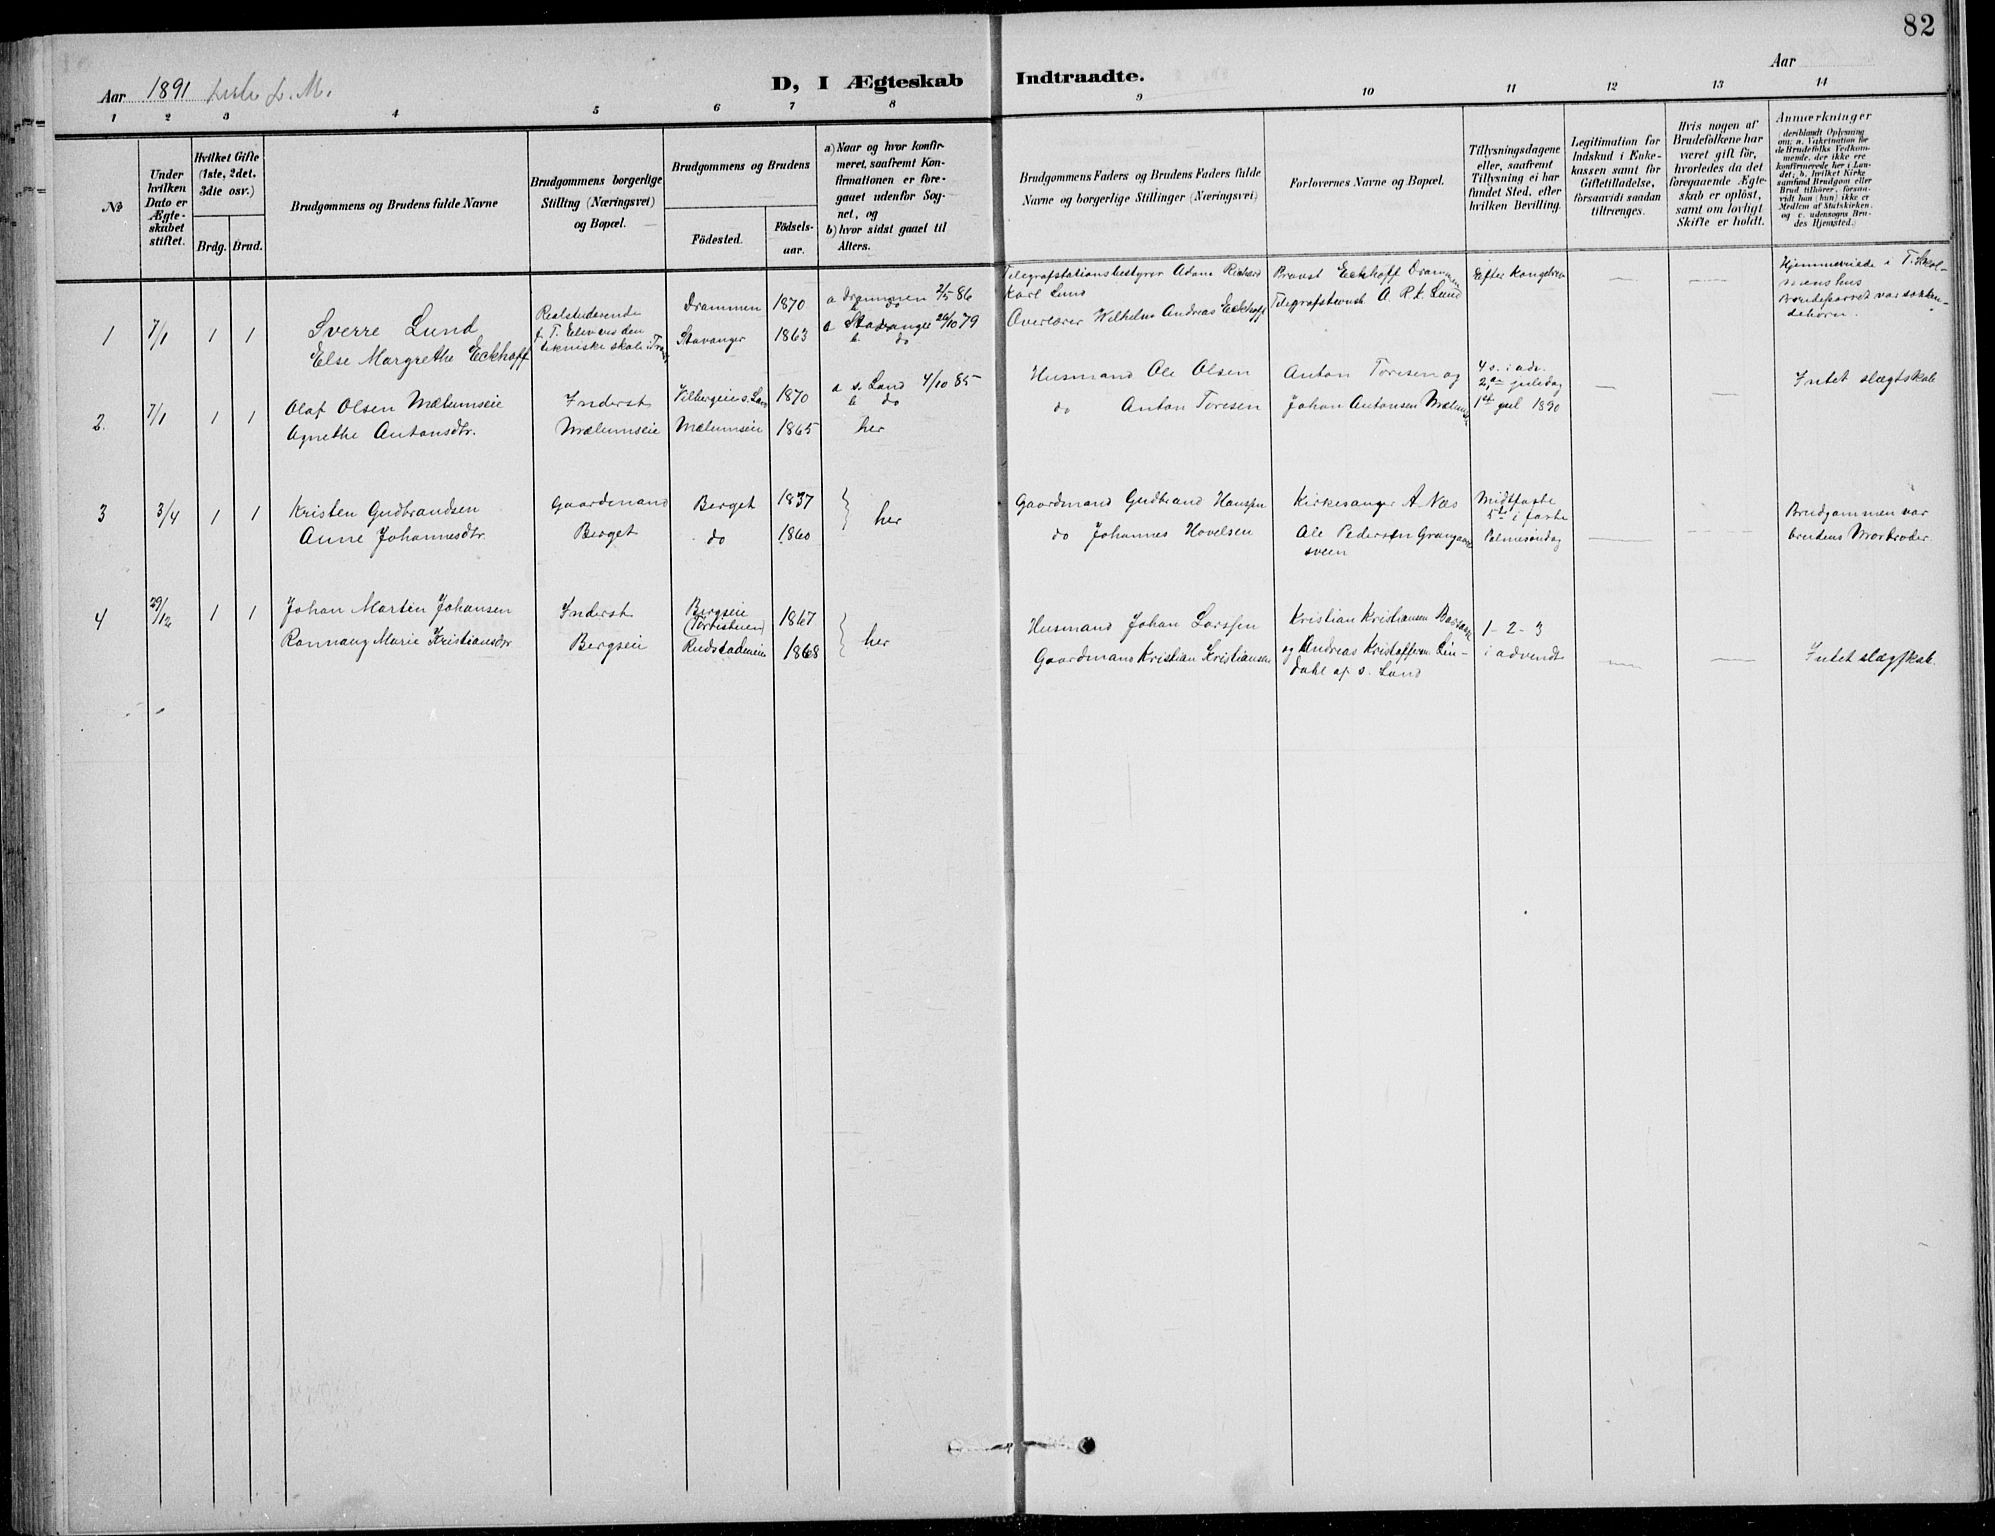 82
Aar 1891
D, I Ægteskab Indtraadte.
Aar
1 2 3 4 5 6 7 8 9 10 11 12 13 14
No
Under hvilken Dato er Ægteskabet stiftet.
Hvilket Gifte (1ste, 2det, 3die osv.)
Brdg. Brud.
Brudgommens og Brudens fulde Navne
Brudgommens borgerlige Stilling (Næringsvei) og Bopæl.
Brudgommens og Brudens
Födested.
Födsels-aar.
a) Naar og hvor konfirmeret, saafremt Konfirmationen er foregaaet udenfor Sognet, og
b) hvor sidst gaaet til Alters.
Brudgommens Faders og Brudens Faders fulde Navne og borgerlige Stillinger (Næringsvei)
Forlovernes Navne og Bopæl.
Tillysningsdagene eller, saafremt Tillysning ei har fundet Sted, efter hvilken Bevilling.
Legitimation for Indskud i Enkekassen samt for Giftetilladelse, forsaavidt saadan tiltrænges.
Hvis nogen af Brudefolkene har været gift för, hvorledes da det foregaaende Ægteskab er oplöst, samt om lovligt Skifte er holdt.
Anmærkninger (deriblandt Oplysning om: a. Vakcination for de Brudefolks Vedkommende, der ikke ere konfirmerede her i Landet; b. hvilket Kirkesamfund Brudgom eller Brud tilhörer, forsaavidt han (hun) ikke er Medlem af Statskirken, og c. udensogns Brudes Hjemsted.)
1 7/1 1 1
Sverre Lund
Else Margrethe Eckhoff
Realstuderende
tekniske skole
Drammen 1870
Stavanger 1863
a Drammen 2/5 86
b do
a Stavanger 26/10 79
b do
Telegrafstationsbestyrer Adam Richard
Karl Lund
Overlærer Wilhelm Andreas Eckhoff
Provst Eckhoff Drammen
A. R. K. Lund
Efter Kongebrev
Hjemmeviede i
2. 7/1 1 1
Olaf Olsen Mælumseie
Agnethe Antonsdtr.
Inderst
Mælumseie
s. Land 1870
Mælumseie 1865
a s. Land 4/10 85
b do
her
Husmand Ole Olsen
do Anton Toresen
Anton Toresen og
Johan Antonsen
4 s. i adv.
2den juledag
1890
Intet slægtskab
3 3/4 1 1
Kristen Gudbrandsen
Anne Johannesdtr.
Gaardmand
Berget
Berget 1837
do 1860
her
Gaardmand Gudbrand Hanssen
do Johannes Hovelsen
Kirkesanger A Næs
Ole Pedersen
sveen
Midtfaste
5te i faste
Palmesöndag
Brudgommen var
brudens Morbroder.
4 29/12 1 1
Johan Martin Johansen
Rannaug Marie Kristiansdtr
Inderst
Bergseie
Bergseie
1867
Rudstadeneie 1868
her
Husmand Johan Larssen
Gaardmand Kristian Kristiansen
Kristian Kristiansen
og Andreas Kristoffersen Lin-
dahl af s. Land
1 - 2 - 3
i advendt
Intet slægtskab.